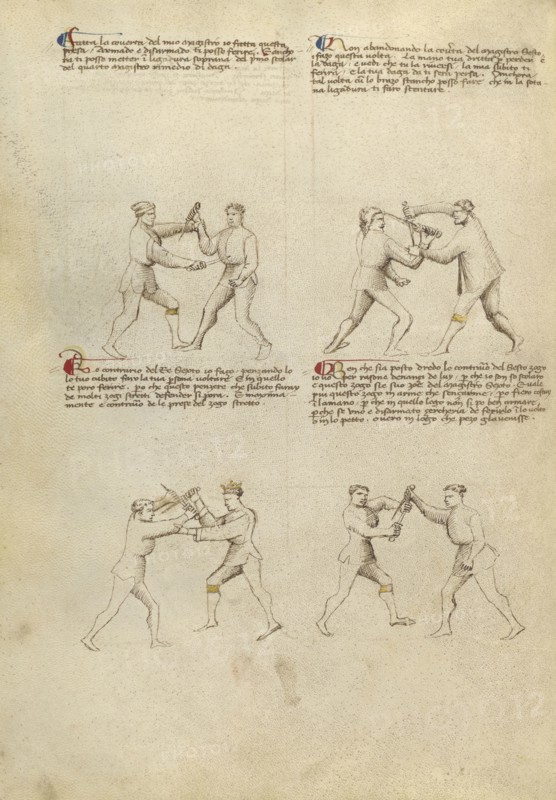 Fatta la coverta del mio magistro io fatta questa
presa / Armado e disarmado ti posso ferire. E ancho
ra ti posso metter i ligadura soprana del primo scolar
del quarto magistro rimedio di daga.
Non abandonando la covra del magistro Sesto,
i fazo questa volta. La mano tua dritta p perder e
la daga, e vedi che tu la riversi, la mia subito ti
ferira / E la tua daga da ti sera persa. Anchora
tal volta cu lo brazo stancho posso fare che in la sota
na ligadura ti faro stentare.
Lo contrario del Re Sexto io fazo pensando lo
lo tuo cubito faro la tua psona voltare E in quello
te poro ferire, po che questo penzere che subito faray
de molti zogi stretti defender si pora. E maxima
mente e contrario de le prese del zogo stretto.
Ben che sia posto dredo lo contrario del Sesto zogo
io vo per rasone denanzi de luy, p che io son so scolaro
e questo zogo sie suo zoe del magistro Sexto. E vale
piu questo zogo in arme che senç'arme, po fiero costuy
in la mano, p che in quello logo non si po ben armare,
p che se uno e disarmato cercheria de ferirlo i lo volto
o in lo petto, overo in logo che pezo glavenisse.